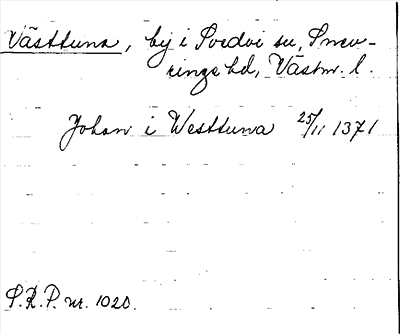 Västtuna, by i Svedvi sn, Snev-
ringe hd, Västm. l.
Johan i Westtuna 25/11 1371
S.R.P. nr. 1020.